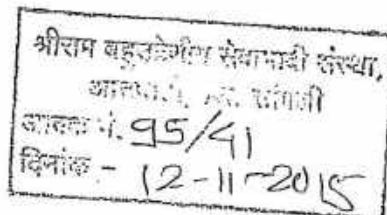 श्रीराम बहुउद्देशीय सेवाभावी संस्था,
सांगली
आवक नं. 95/41
दिनांक - 12-11-2015